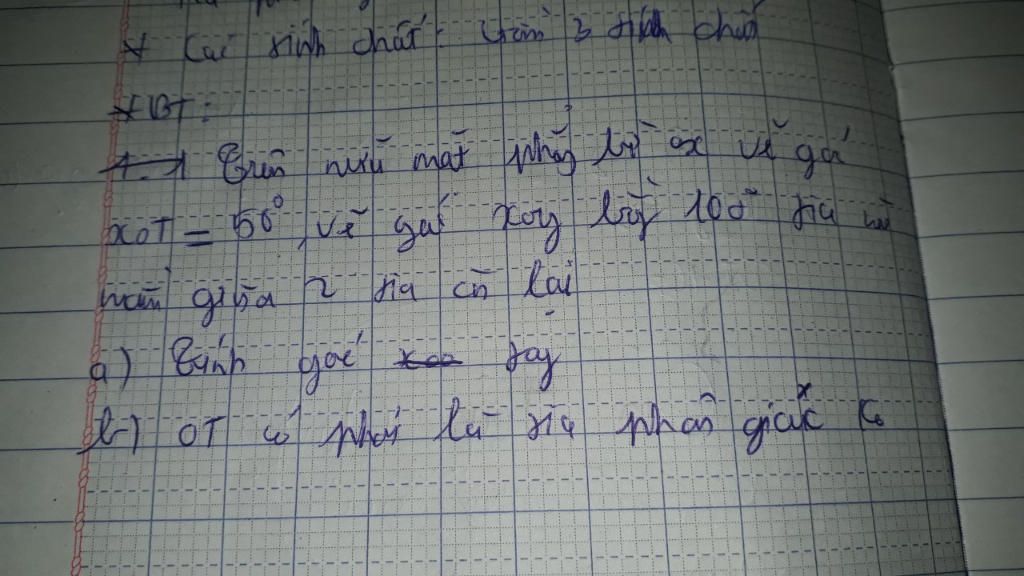 * Các tính chất: Gồm 3 tính chất
* BT:
1 Trên nửa mặt phẳng bờ ox vẽ góc
xOT = 50°, vẽ góc xoy bằng 100° tia nào
nằm giữa 2 tia còn lại
a) Tính góc toy
b) OT có phải là tia phân giác ko